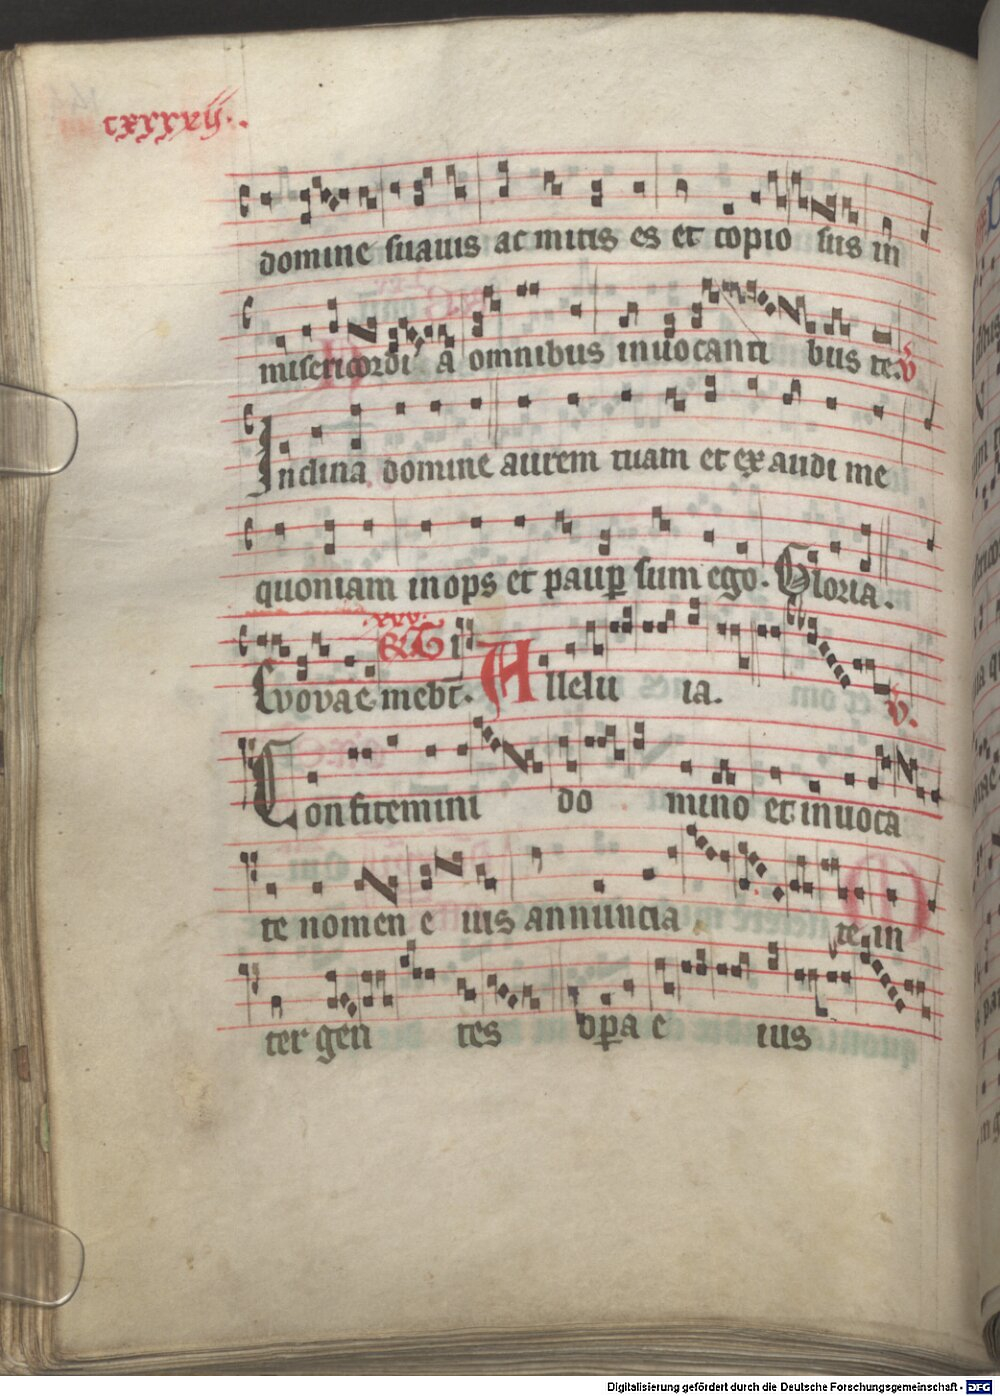 cxxxxvij.
domine suauis ac mitis es et copio sus in
misericordi a omnibus inuocanti bus te. v
Inclina domine aurem tuam et ex audi me
quoniam inops et paup sum ego. Gloria.
xxv.
Evovae mebt. Allelu ia. v.
Confitemini do mino et inuoca
te nomen e ius annuncia te in
ter gen tes opa e ius
Digitalisierung gefördert durch die Deutsche Forschungsgemeinschaft - DFG